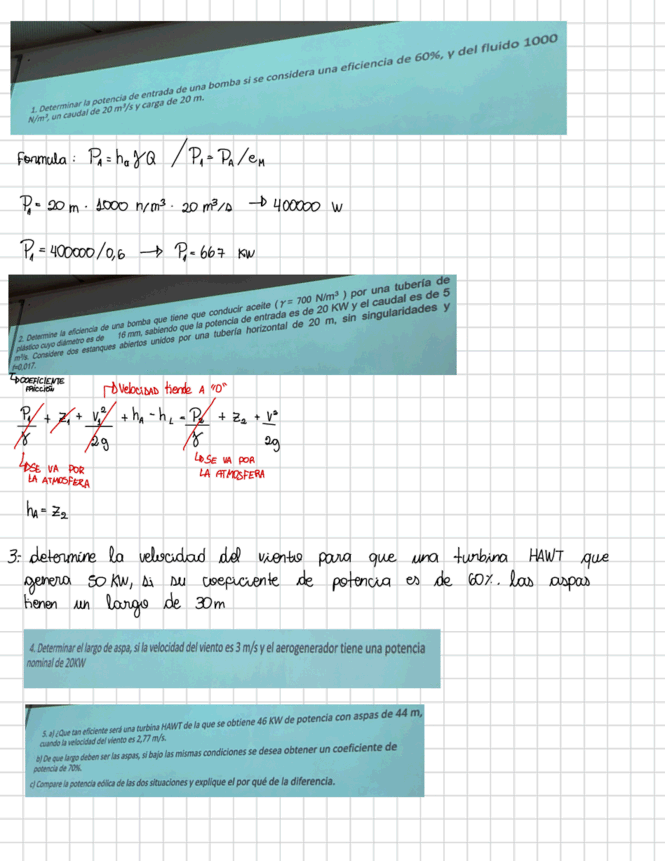 1. Determinar la potencia de entrada de una bomba si se considera una eficiencia de 60%, y del fluido 1000
N/m³, un caudal de 20 m³/s y carga de 20 m.
Formula : P₁ = hₐ γ Q / P₁ = Pₐ / eₘ
P₁ = 20 m · 1000 n/m³ · 20 m³/s → 400000 W
P₁ = 400000/0,6 → P₁ = 667 KW
2. Determine la eficiencia de una bomba que tiene que conducir aceite (γ = 700 N/m³ ) por una tubería de
plástico cuyo diámetro es de 16 mm, sabiendo que la potencia de entrada es de 20 KW y el caudal es de 5
m³/s. Considere dos estanques abiertos unidos por una tubería horizontal de 20 m, sin singularidades y
f=0,017.
COEFICIENTE
FRICCIÓN
Velocidad tiende A "0"
P₁/γ + z₁ + v₁²/2g + hA - hL = P₂/γ + z₂ + v²/2g
SE VA POR
LA ATMOSFERA
SE VA POR
LA ATMOSFERA
hA = z₂
3.- determine la velocidad del viento para que una turbina HAWT que
genera 50 KW, si su coeficiente de potencia es de 60%. las aspas
tienen un largo de 30m
4. Determinar el largo de aspa, si la velocidad del viento es 3 m/s y el aerogenerador tiene una potencia
nominal de 20KW
5. a) ¿Que tan eficiente será una turbina HAWT de la que se obtiene 46 KW de potencia con aspas de 44 m,
cuando la velocidad del viento es 2,77 m/s.
b) De que largo deben ser las aspas, si bajo las mismas condiciones se desea obtener un coeficiente de
potencia de 70%.
c) Compare la potencia eólica de las dos situaciones y explique el por qué de la diferencia.